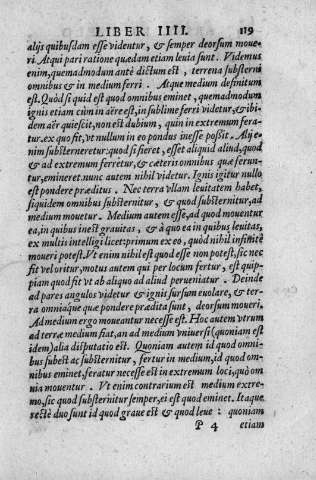 LIBER IIII. 119
alijs quibusdam esse videntur, & semper deorsum moue-
ri. Atqui pari ratione quædam etiam leuia sunt. Videmus
enim, quemadmodum antè dictum est, terrena substerni
omnibus & in medium ferri. Atque medium definitum
est. Quòd si quid est quod omnibus eminet, quemadmodum
ignis etiam cùm in aëre est, in sublime ferri videtur, & ibi-
dem aër quiescit, non est dubium, quin in extremum fera-
tur. ex quo fit, vt nullum in eo pondus inesse possit. Alij e-
nim substerneretur: quod si fieret, esset aliquid aliud, quod
& ad extremum ferretur, & cæteris omnibus quæ ferun-
tur, emineret. nunc autem nihil videtur. Ignis igitur nullo
est pondere præditus. Nec terra vllam leuitatem habet,
siquidem omnibus substernitur, & quod substernitur, ad
medium mouetur. Medium autem esse, ad quod mouentur
ea, in quibus inest grauitas, & à quo ea in quibus leuitas,
ex multis intelligi licet: primum ex eo, quòd nihil infinitè
moueri potest. Vt enim nihil est quod esse non potest, sic nec
fit vel oritur, motus autem qui per locum fertur, est quip-
piam quod fit vt ab aliquo ad aliud perueniatur. Deinde
ad pares angulos videtur & ignis sursum euolare, & ter-
ra omniáque quæ pondere prædita sunt, deorsum moueri.
Ad medium ergo moueantur necesse est. Hoc autem vtrum
ad terræ medium fiat, an ad medium vniuersi (quoniam est
idem) alia disputatio est. Quoniam autem id quod omni-
bus subest ac substernitur, fertur in medium, id quod om-
nibus eminet, feratur necesse est in extremum loci, quò om
nia mouentur. Vt enim contrarium est medium extre-
mo, sic quod substernitur semper, ei est quod eminet. Itaque
rectè duo sunt id quod graue est & quod leue: quoniam
P 4 etiam